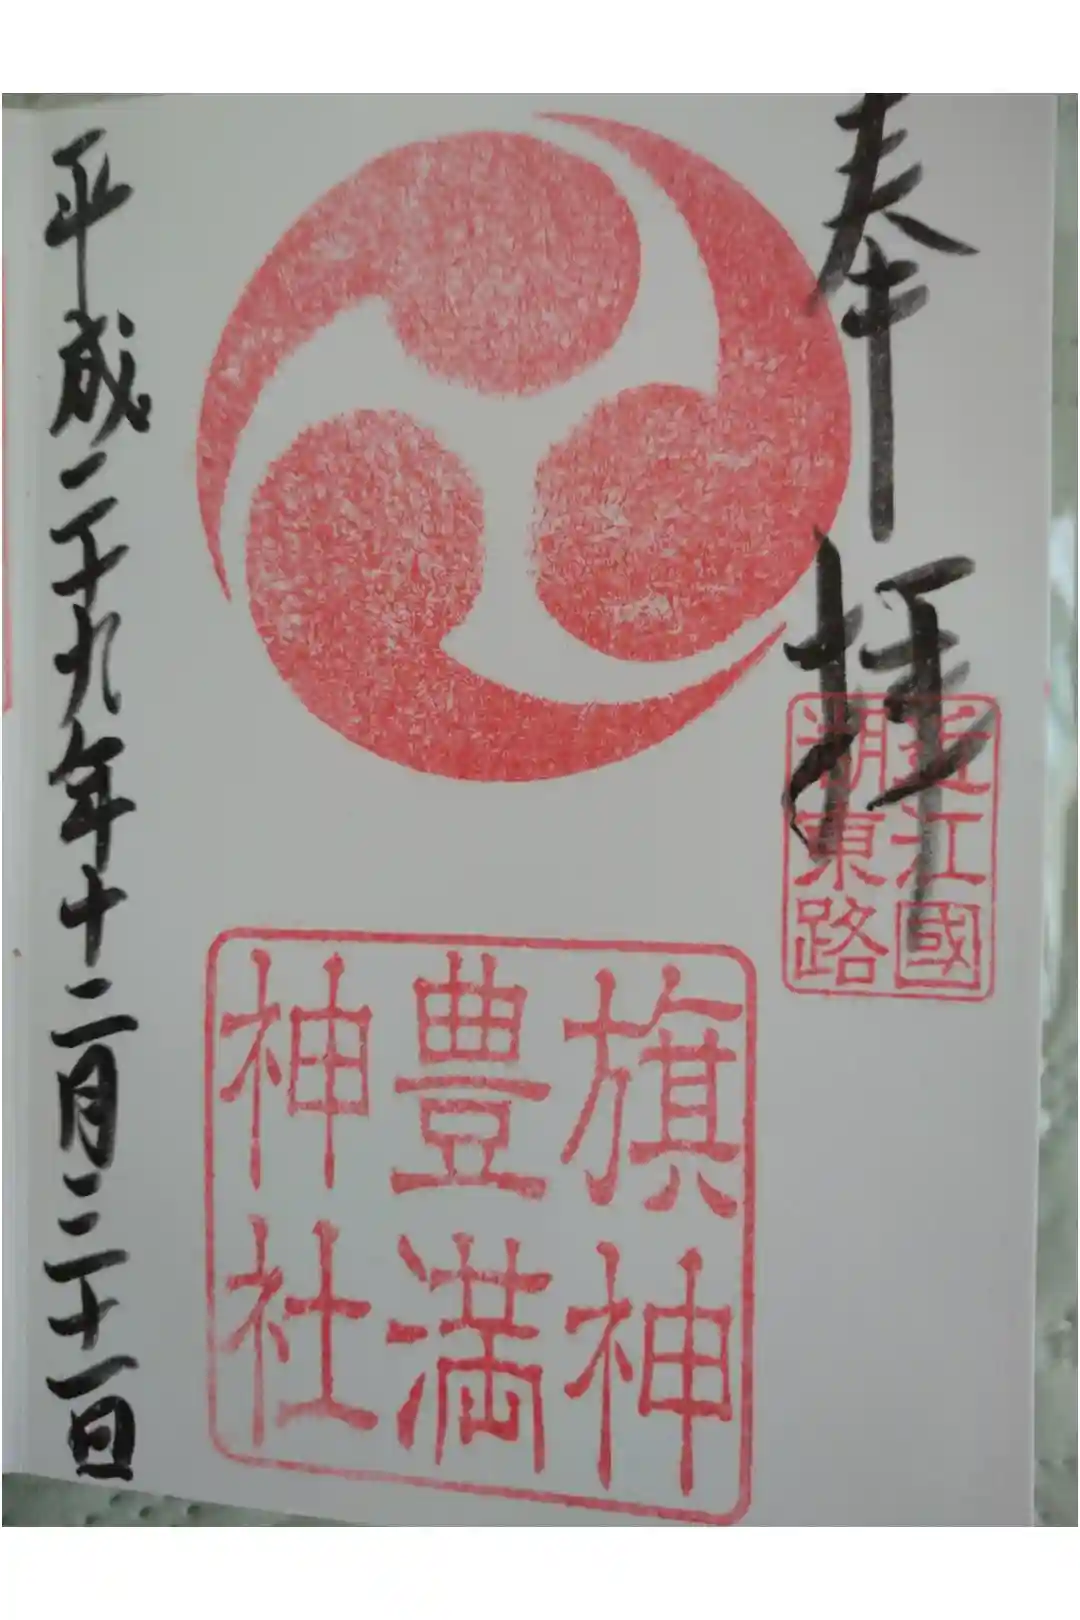 奉拝
近江國
湖東路
旗神
豊満
神社
平成二十九年十二月二十一日